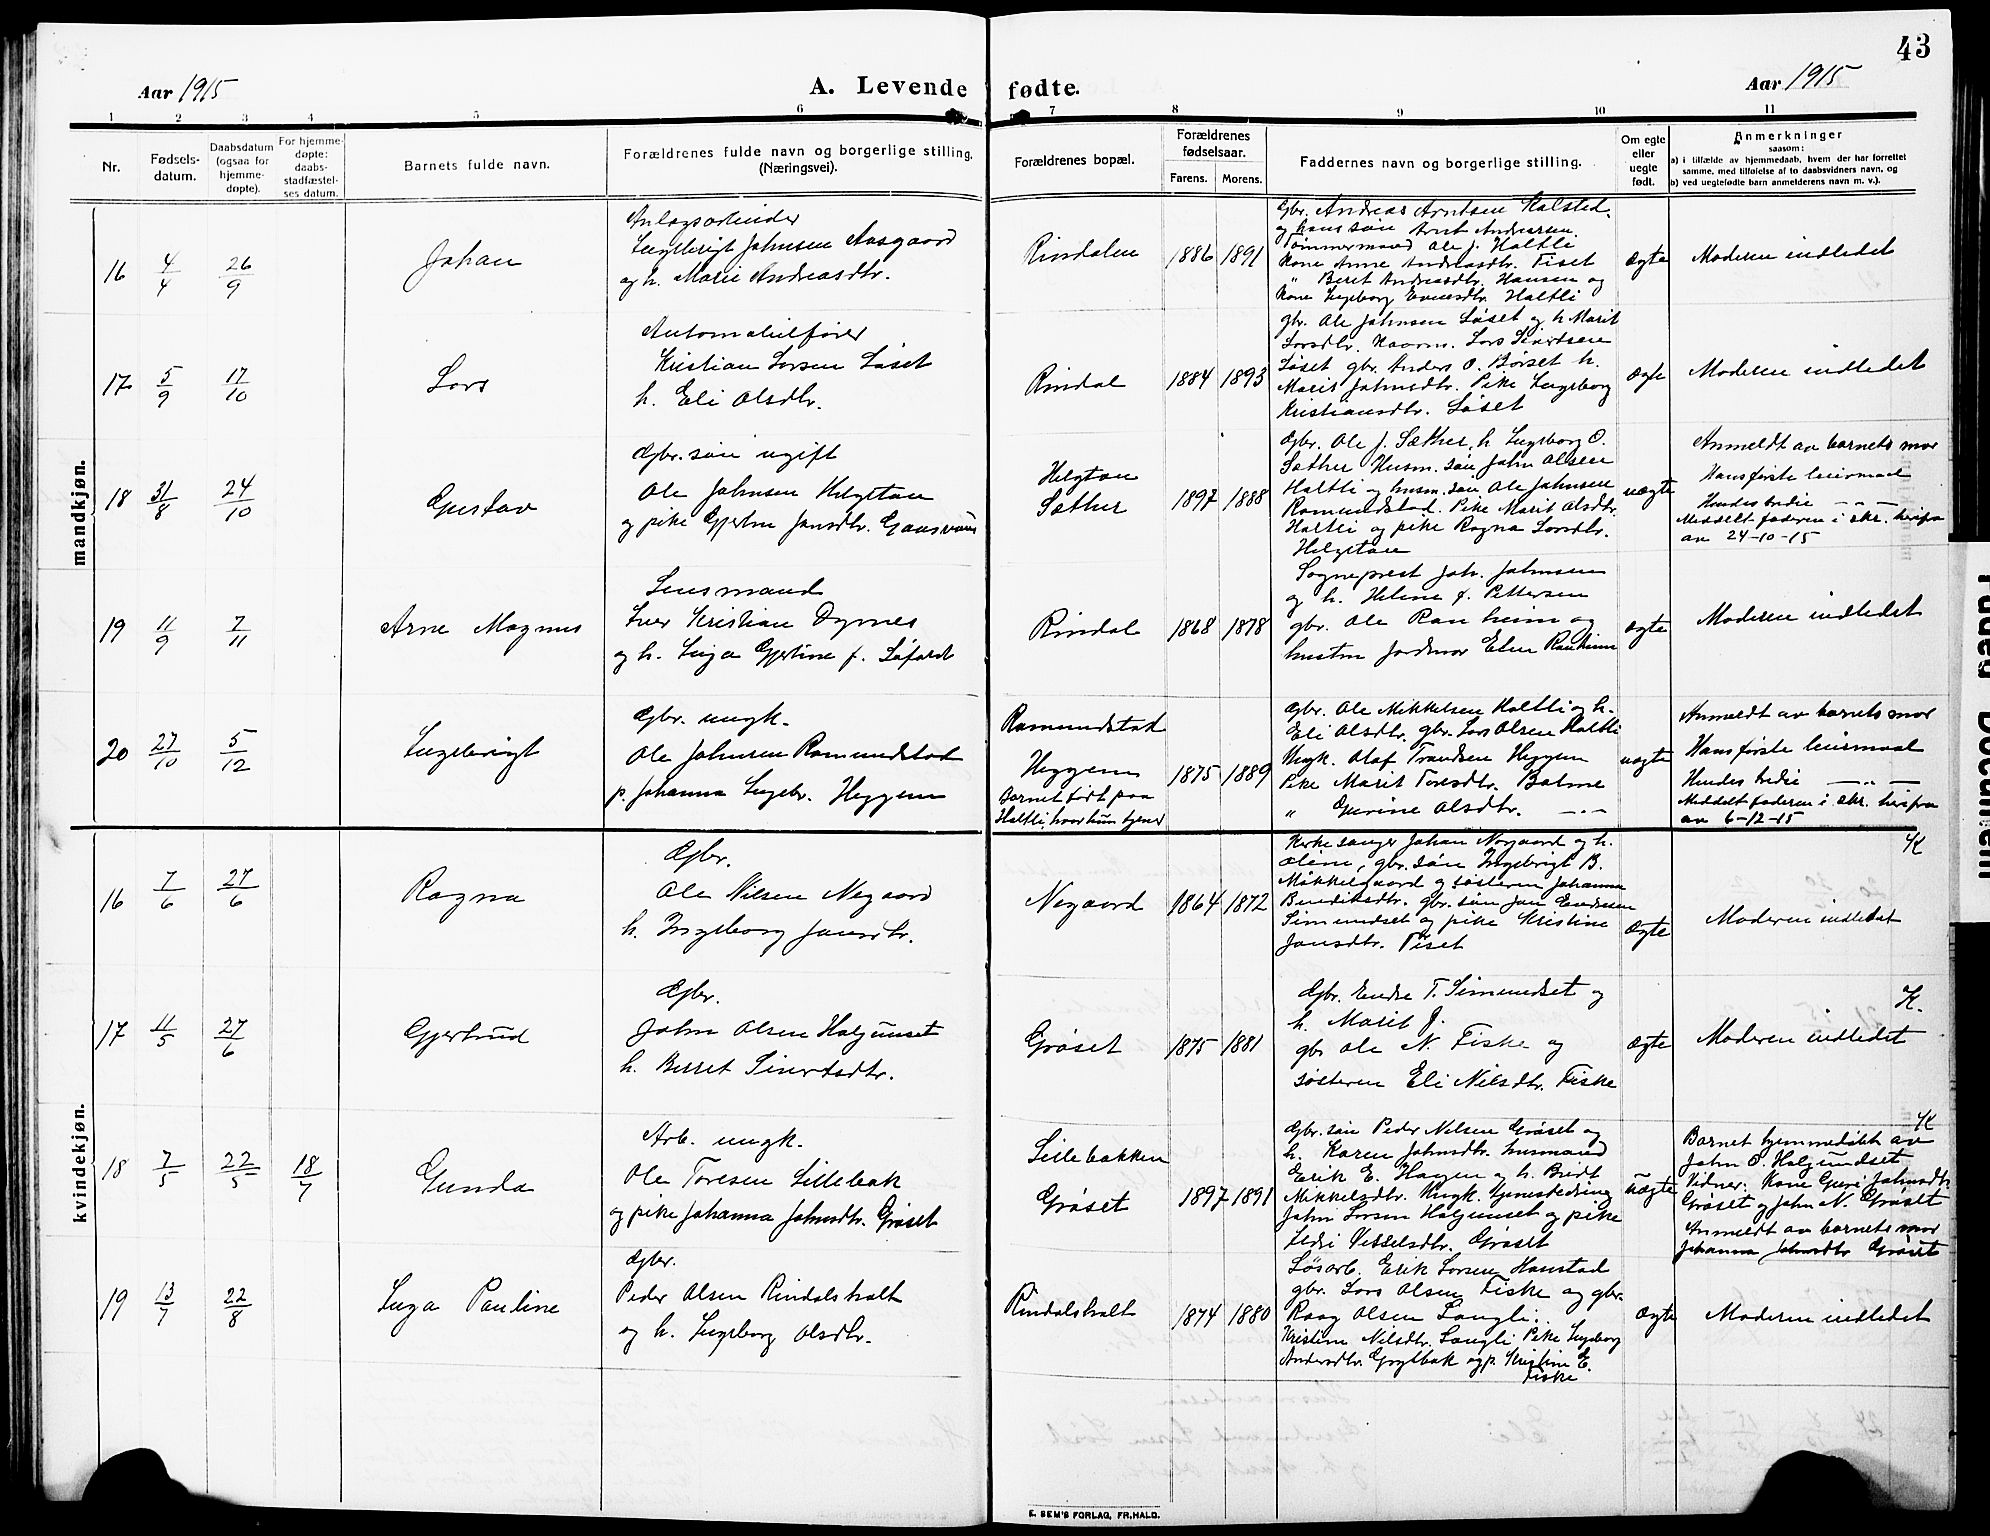 43
Aar 1915
A. Levende fødte.
Aar 1915
1 2 3 4 5 6 7 8 9 10 11
Nr.
Fødsels-
datum.
Daabsdatum
(ogsaa for
hjemme-
døpte).
For hjemme-
døpte:
daabs-
stadfæstel-
ses datum.
Barnets fulde navn.
Forældrenes fulde navn og borgerlige stilling.
(Næringsvei).
Forældrenes bopæl.
Forældrenes
fødselsaar.
Farens. Morens.
Faddernes navn og borgerlige stilling.
Om egte
eller
uegte
født.
Anmerkninger
saasom:
a) i tilfælde av hjemmedaab, hvem der har forrettet
samme, med tilføielse af to daabsvidners navn, og
b) ved uegtefødte barn anmelderens navn m. v.).
mandkjøn.
16 4/4 26/9
Johan
Anlægsarbeider
Ingebrigt Johnsen Aasgaard
og h. Marie Andreasdtr.
Rindalen
1886 1891
Gbr. Andreas Arntsen Halsted.
og hans søn Arnt Andreassen.
Tømmermand Ole J. Haltli
Kone Anne Andreasdtr. Fiset
" Beret Andreasdtr. Hansen og
Kone Ingeborg Evensdtr. Haltli
Ægte
Moderen indledet
17 5/9 17/10
Lars
Automobilfører
Kristian Larsen Løset
h. Eli Olsdtr.
Rindal
1884 1893
gbr. Ole Johnsen Løset og h. Marit
Larsdtr. Lars Sivertsen
Løset gbr. Anders O. Børset h.
Marit Johnsdtr. Pike Ingeborg
Kristiansdtr. Løset
Ægte
Moderen indledet
18 31/8 24/10
Gustav
Gbr. søn ugift
Ole Johnsen Helgetun
og pike Gjertine Jonsdtr. Gaasvatn
Helgetun
Sæther
1897 1888
Gbr. Ole J. Sæther, h. Ingeborg O.
Sæther Husm. søn John Olsen
Haltli og husm. søn Ole Johnsen
Romundstad. Pike Marit Olsdtr.
Haltli og pike Ragna Larsdtr.
Helgetun
uægte
Anmeldt av barnets mor
Hans første leiermaal
Hendes tredie — " —
Meddelt faderen i skr. herfra
av 24-10-15
19 11/9 7/11
Arne Magnus
Lensmand
Iver Kristian Dyrnes
og h. Inga Gjertine f. Løfaldt
Rindal
1868 1878
Sogneprest Joh. Johnsen
og h. Helene f. Pettersen
gbr. Ole Ranheim og
hustru Jordmor Elen Ranheim
Ægte
Moderen indledet
20 27/10 5/12
Ingebrigt
Gbr. ungk.
Ole Johnsen Romundstad
p. Johanna Ingebr. Heggem
Romundstad
Heggem
Barnet født paa
Haltli, hvor hun tjener
1875 1889
Gbr. Ole Mikkelsen Haltli og h.
Eli Olsdtr. gbr. Lars Olsen Haltli
Ungk. Olaf Trondsen Heggem
Pike Marit Toresdtr. Bolme
" Gurine Olsdtr. — " —
uægte
Anmeldt av barnets mor
Hans første leiermaal
Hendes tredie — " —
Meddelt faderen i skr. herfra
av 6-12-15
kvindekjøn.
16 7/6 27/6
Ragna
Gbr.
Ole Nilsen Negaard
h. Ingeborg Jonsdtr.
Negaard
1864 1872
Kirkesanger Johan Negaard og h.
Oline, gbr. søn Ingebrigt B.
Mikkelgaard og søsteren Johanna
Bendiksdtr. gbr. søn Jon Endresen
Simundset og pike Kristine
Jonsdtr. Fiset
Ægte
Moderen indledet
17 11/5 27/6
Gjertrud
Gbr.
John Olsen Halgunset
h. Beret Sivertsdtr.
Grøset
1875 1881
Gbr. Endre T. Simundset og
h. Marit J.
gbr Ole N. Fiske og
søsteren Eli Nilsdtr. Fiske
Ægte
K.
Moderen indledet
18 7/5 22/5 18/7
Gunda
Arb. ungk.
Ole Toresen Lillebak
og pike Johanna Johnsdtr. Grøset
Lillebakken
Grøset
1897 1891
Gbr. søn Peder Nilsen Grøset og
h. Karen Johnsdtr. husmand
Erik E. Hagen og h. Bridt
Mikkelsdtr. Ungk. tjenestedreng
John Larsen Halgunset og pike
Vesselsdtr. Grøset
Uægte
Barnet hjemmedøbt av
John O. Halgundset
Vidner: Kone Guri Johnsdtr.
Grøset og John N. Grøset
Anmeldt av barnets mor
Johanna Johnsdtr Grøset
19 13/7 22/8
Inga Pauline
Gbr.
Peder Olsen Rindalsholt
og h. Ingeborg Olsdtr.
Rindalsholt
1874 1880
Løsarb. Erik Larsen Hanstad
gbr. Lars Olsen Fiske og gbr.
Roag Olsen Langli.
Kristine Nilsdtr. Langli Pike Ingeborg
Andersdtr. Grytbak og p. Kristine E.
Fiske
Ægte
Moderen indledet
E. SEM'S FORLAG, FR.HALD.